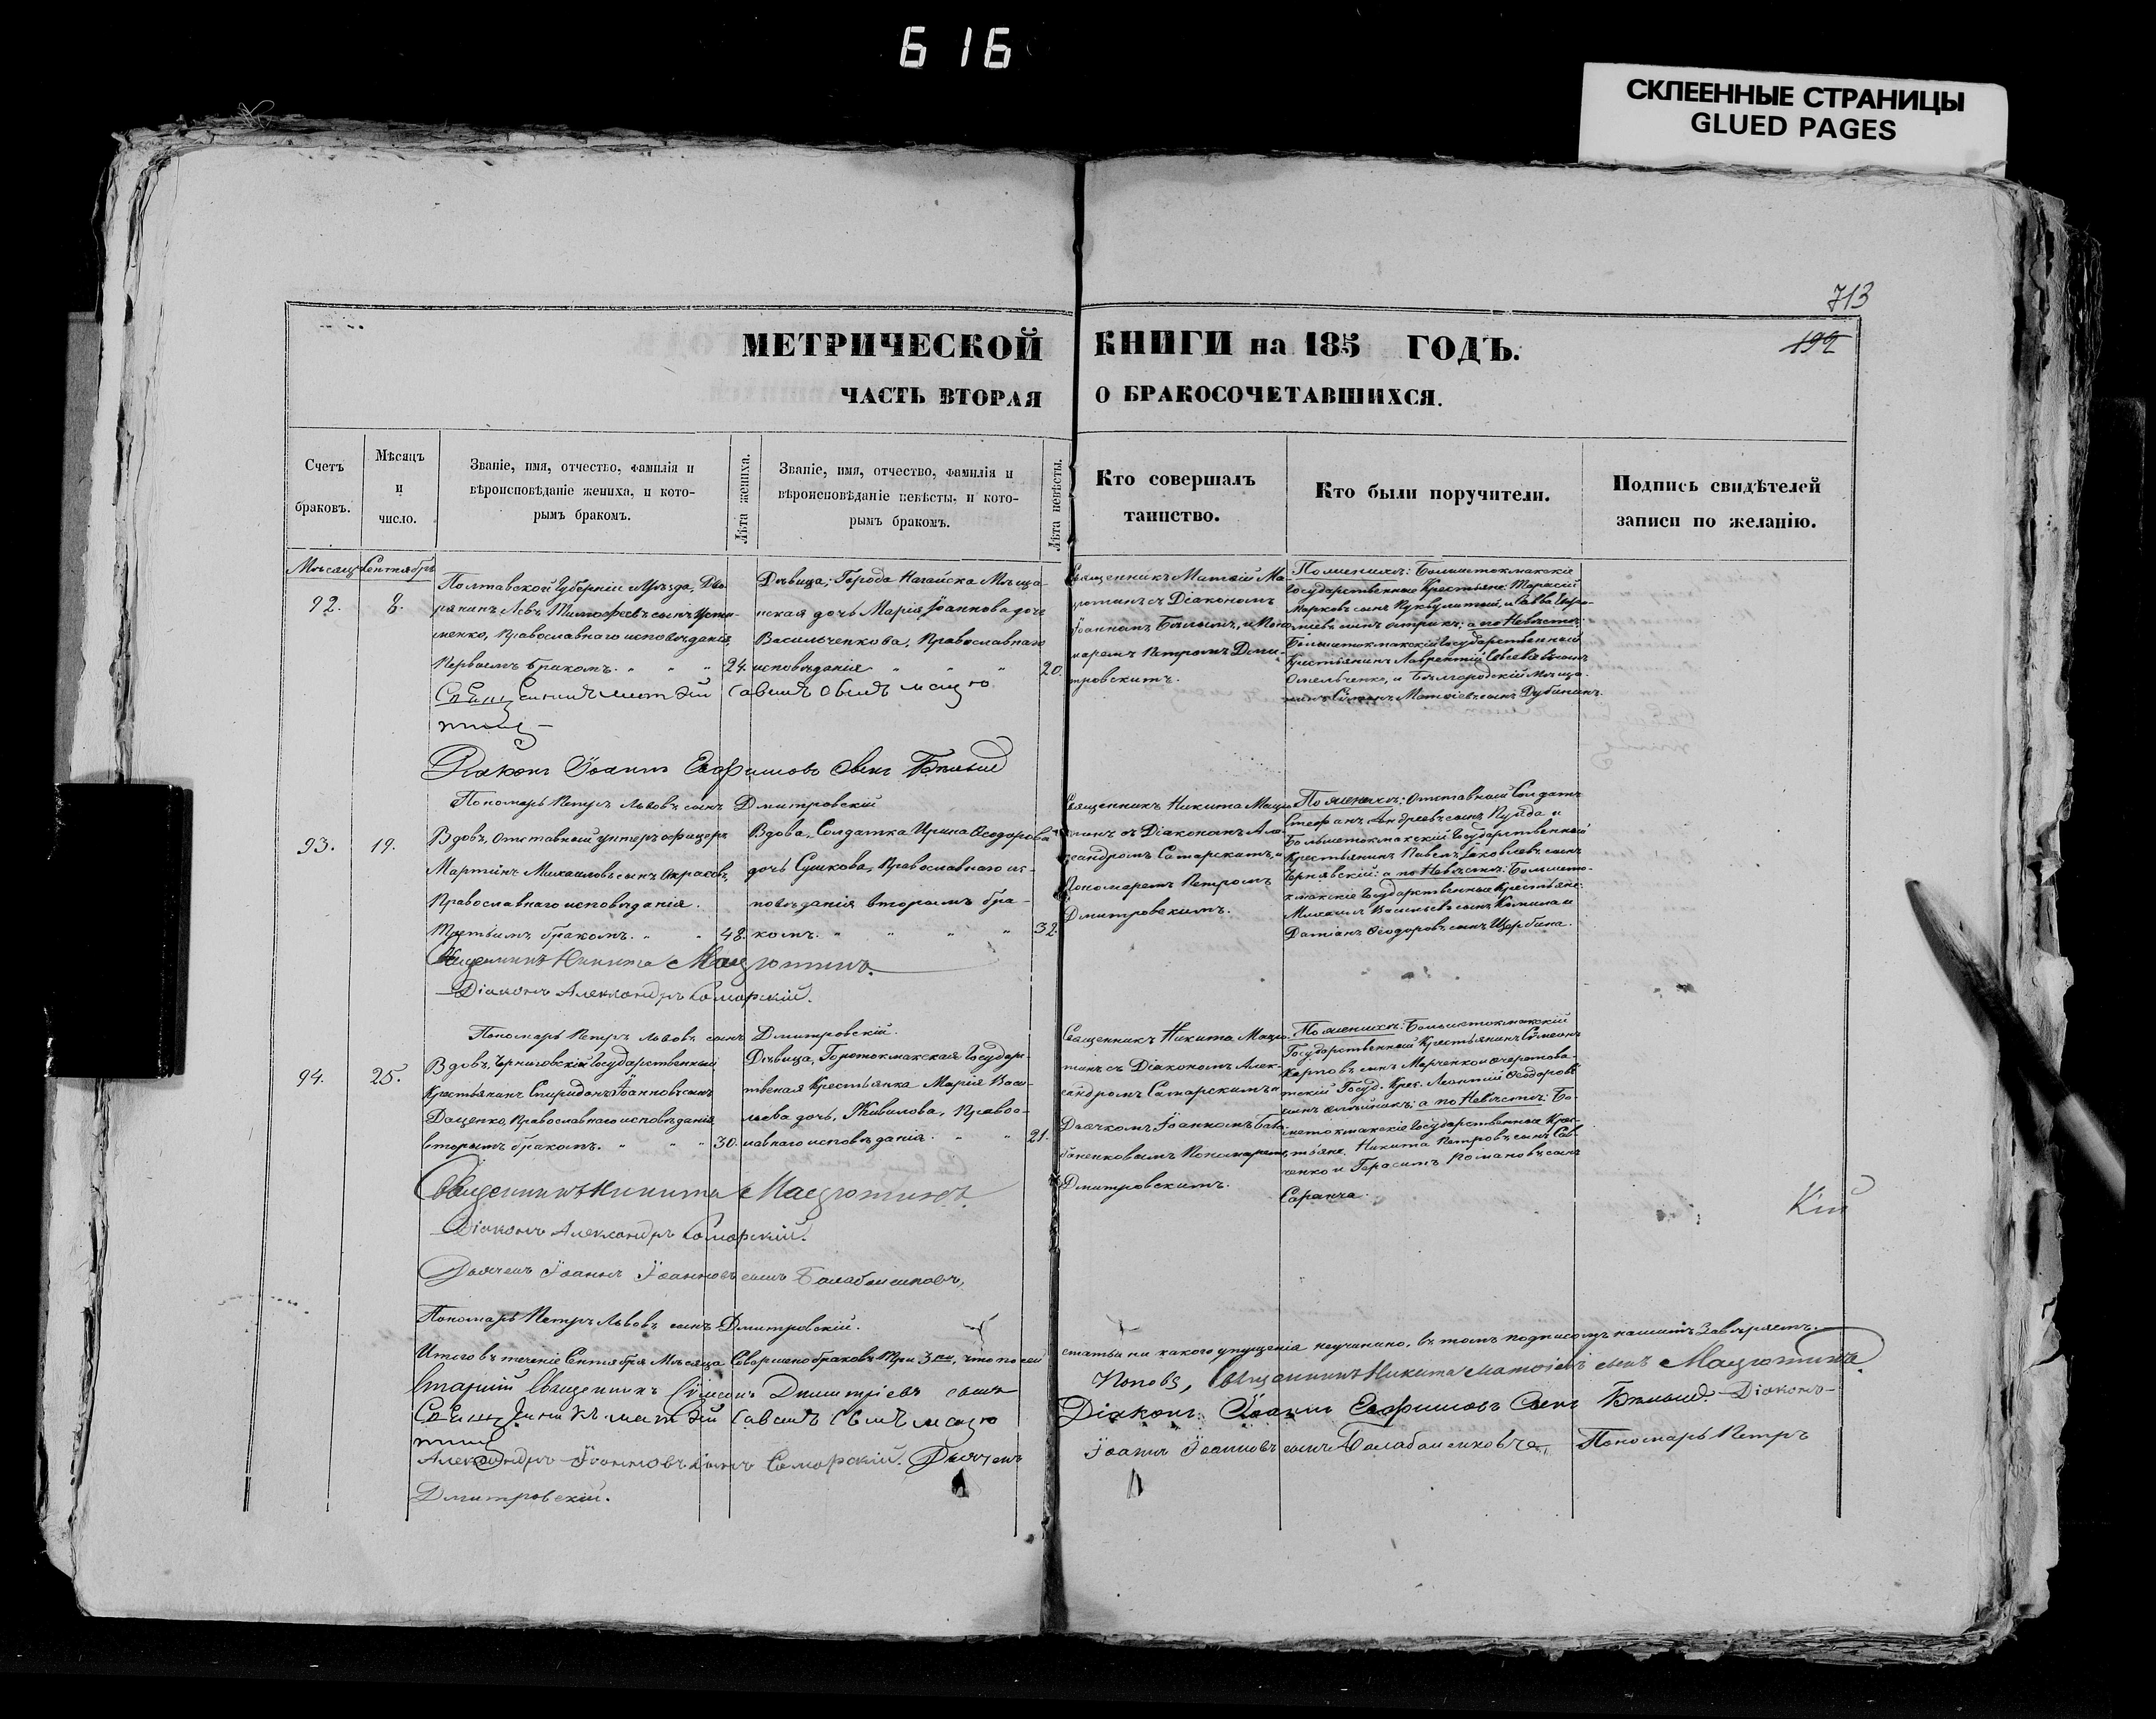 616
СКЛЕЕННЫЕ СТРАНИЦЫ
GLUED PAGES
713
192
МЕТРИЧЕСКОЙ КНИГИ на 185 ГОДЪ.
ЧАСТЬ ВТОРАЯ О БРАКОСОЧЕТАВШИХСЯ.
Счетъ
браковъ.
Мѣсяцъ
и
число.
Званіе, имя, отчество, фамилія и
вѣроисповѣданіе жениха, и кото-
рымъ бракомъ.
Лѣта жениха.
Званіе, имя, отчество, фамилія и
вѣроисповѣданіе невѣсты, и кото-
рымъ бракомъ.
Лѣта невѣсты.
Кто совершалъ
таинство.
Кто были поручители.
Подпись свидѣтелей
записи по желанію.
Мѣсяцъ Сентябрь
92.
8.
Полтавской Губерніи Уѣзда, Дво-
рянинъ Левъ Тимофеевъ сынъ
Православнаго исповѣданія,
Первымъ бракомъ.
24.
Дѣвица, Города Нагайска Мѣща-
нская дочь Марія Іоаннова дочь
Васильченкова, Православнаго
исповѣданія
20.
Священникъ Матвій Ма-
цютинъ съ Діакономъ
Іоанномъ Бѣлымъ, и Поно-
маремъ Петромъ Дми-
тровскимъ.
По женихѣ: Большетокмакскіе
Государственные Крестьяне: Тарасій
Марковъ сынъ и Савва
сынъ а по Невѣстѣ:
Большетокмакскій Государственный
Крестьянинъ Лаврентій сынъ
Омельченко, и Бѣлгородскій Мѣща-
нинъ Матвіевъ сынъ Дубининъ.
Діаконъ Іоаннъ Евфимовъ сынъ Бѣлый
Пономарь Петръ Львовъ сынъ Дмитровскій
93.
19.
Вдовъ, Отставный унтеръ офицеръ
Мартинъ Михаиловъ сынъ
Православнаго исповѣданія.
Третьимъ бракомъ.
48.
Вдова, Солдатка Ирина Ѳеодорова
дочь Сушкова, Православнаго ис-
повѣданія вторымъ бра-
комъ.
32.
Священникъ Никита Мацю-
тинъ съ Діакономъ Але-
ксандромъ Самарскимъ, и
Пономаремъ Петромъ
Дмитровскимъ.
По женихѣ: Отставный Солдатъ
Стефанъ Андреевъ сынъ и
Большетокмакскій Государственный
Крестьянинъ Павелъ Іаковлевъ сынъ
Чернявскій: а по Невѣстѣ: Большето-
кмакскіе Государственные Крестьяне:
Михаилъ Васильевъ сынъ и
Даміанъ Ѳеодоровъ сынъ Щербина.
Священникъ Никита Мацютинъ.
Діаконъ Александръ Самарскій.
Пономарь Петръ Львовъ сынъ Дмитровскій.
94.
25.
Вдовъ, Черниговскій Государственный
Крестьянинъ Спиридонъ Іоанновъ сынъ
Даценко, Православнаго исповѣданія
вторымъ бракомъ.
30.
Дѣвица, Государ-
твеная Крестьянка Марія Васи-
льева дочь, Живилова, Право-
лавнаго исповѣданія.
21.
Священникъ Никита Мацю-
тинъ съ Діакономъ Алек-
сандромъ Самарскимъ и
Дьячкомъ Іоанномъ Бала-
баненковымъ Пономаремъ
Дмитровскимъ.
По женихѣ: Большетокмакскій
Государственный Крестьянинъ Сѵмеонъ
Карповъ сынъ Марченко и
Госуд. Крес. Леонтій Ѳеодоровъ
сынъ а по Невѣстѣ: Бо-
льшетокмакскіе Государственные Крес-
тьяне. Никита Петровъ сынъ Сав-
ченко и Герасимъ Романовъ сынъ
Саранча.
Священникъ Никита Мацютинъ
Діаконъ Александръ Самарскій.
Дьячекъ Іоаннъ Іоанновъ сынъ Балабаненковъ,
Пономарь Петръ Львовъ сынъ Дмитровскій.
Итого въ теченіе Сентября Мѣсяца Совершено браковъ три 3, что по сей
статьи ни какого упущенія неучинено, въ томъ подписомъ нашимъ Завѣряемъ.
Старшій Священникъ Сѵмеонъ Димитріевъ сынъ
Поповъ, Священникъ Никита Матвіевъ сынъ Мацютинъ.
Діаконъ Іоаннъ Евфимовъ Сынъ Бѣлый. Діаконъ
Александръ Іоанновъ сынъ Самарскій. Дьячекъ
Іоаннъ Іоанновъ сынъ Балабаненковъ, Пономарь Петръ
Дмитровскій.